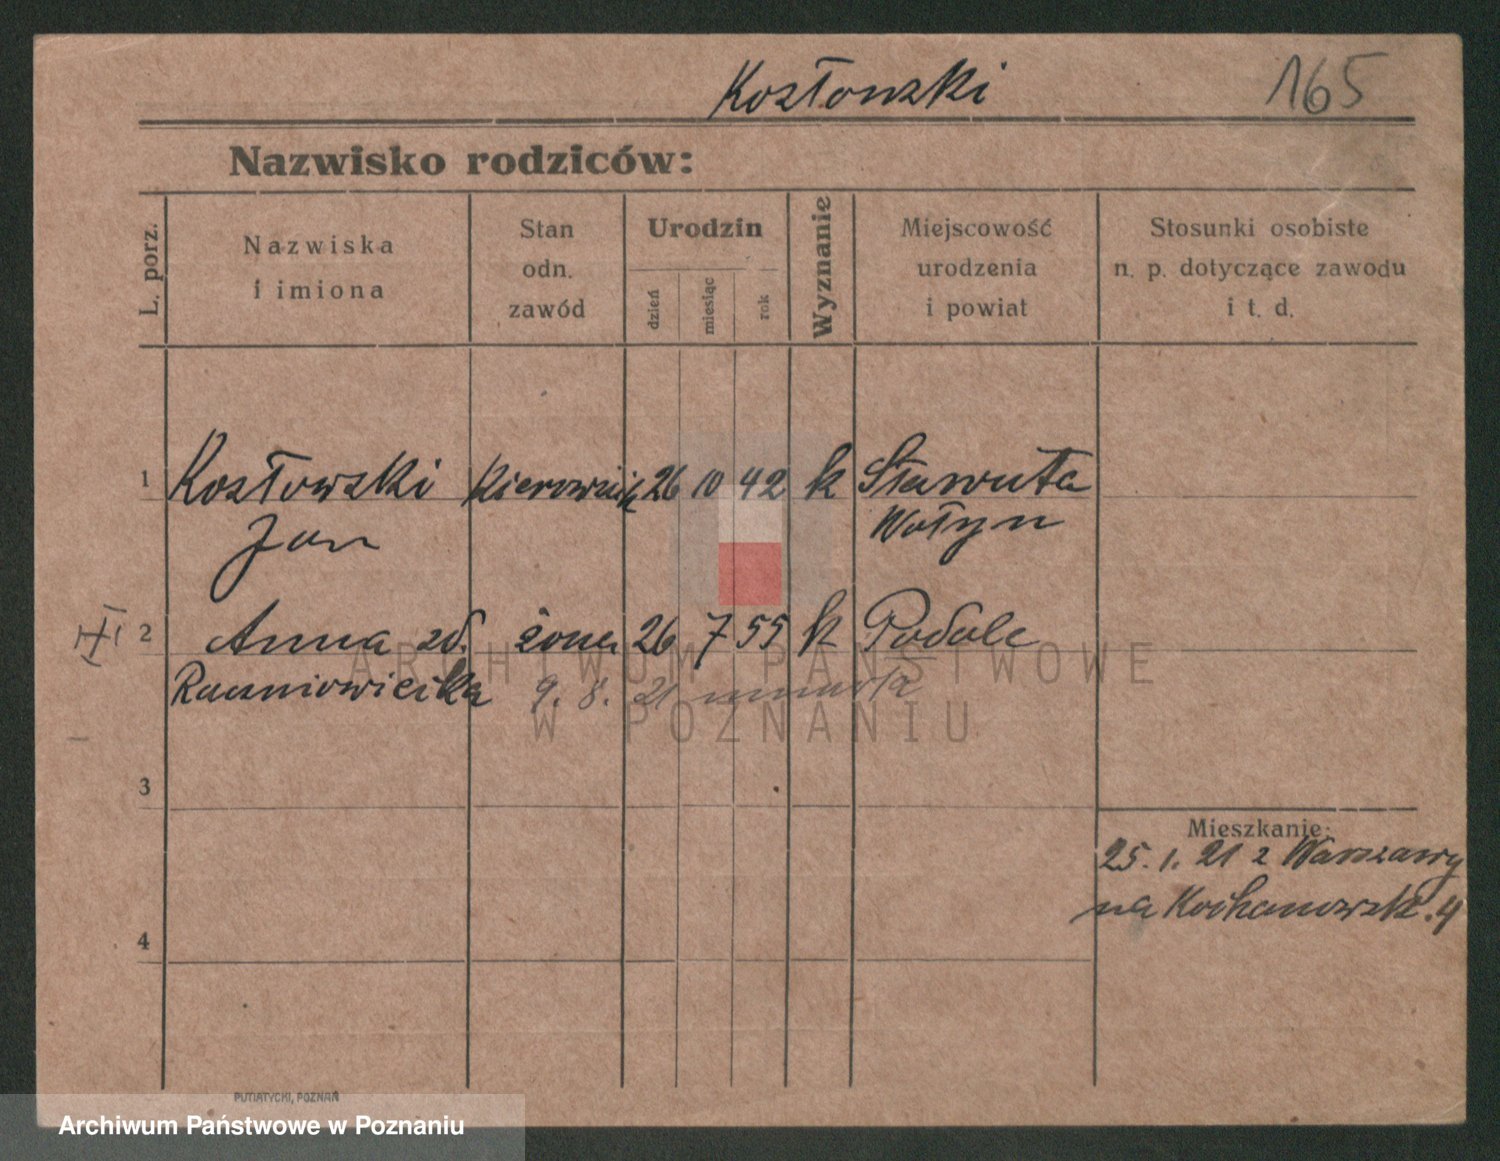 Kozłowski 165
Nazwisko rodziców:
L. porz.
Nazwiska
i imiona
Stan
odn.
zawód
Urodzin
dzień
miesiąc
rok
Wyznanie
Miejscowość
urodzenia
i powiat
Stosunki osobiste
n. p. dotyczące zawodu
i t. d.
1 Kozłowski kierownik 26 10 42 k Sławuta
Jan Wołyn
2 Anna zd. żona 26 7 55 k Podole
9. 8. 21 umarła
3
Mieszkanie:
25. 1. 21 z Warszawy
na Kochanowsk. 4
4
PUTIATYCKI, POZNAŃ
ARCHIWUM PAŃSTWOWE
W POZNANIU
Archiwum Państwowe w Poznaniu